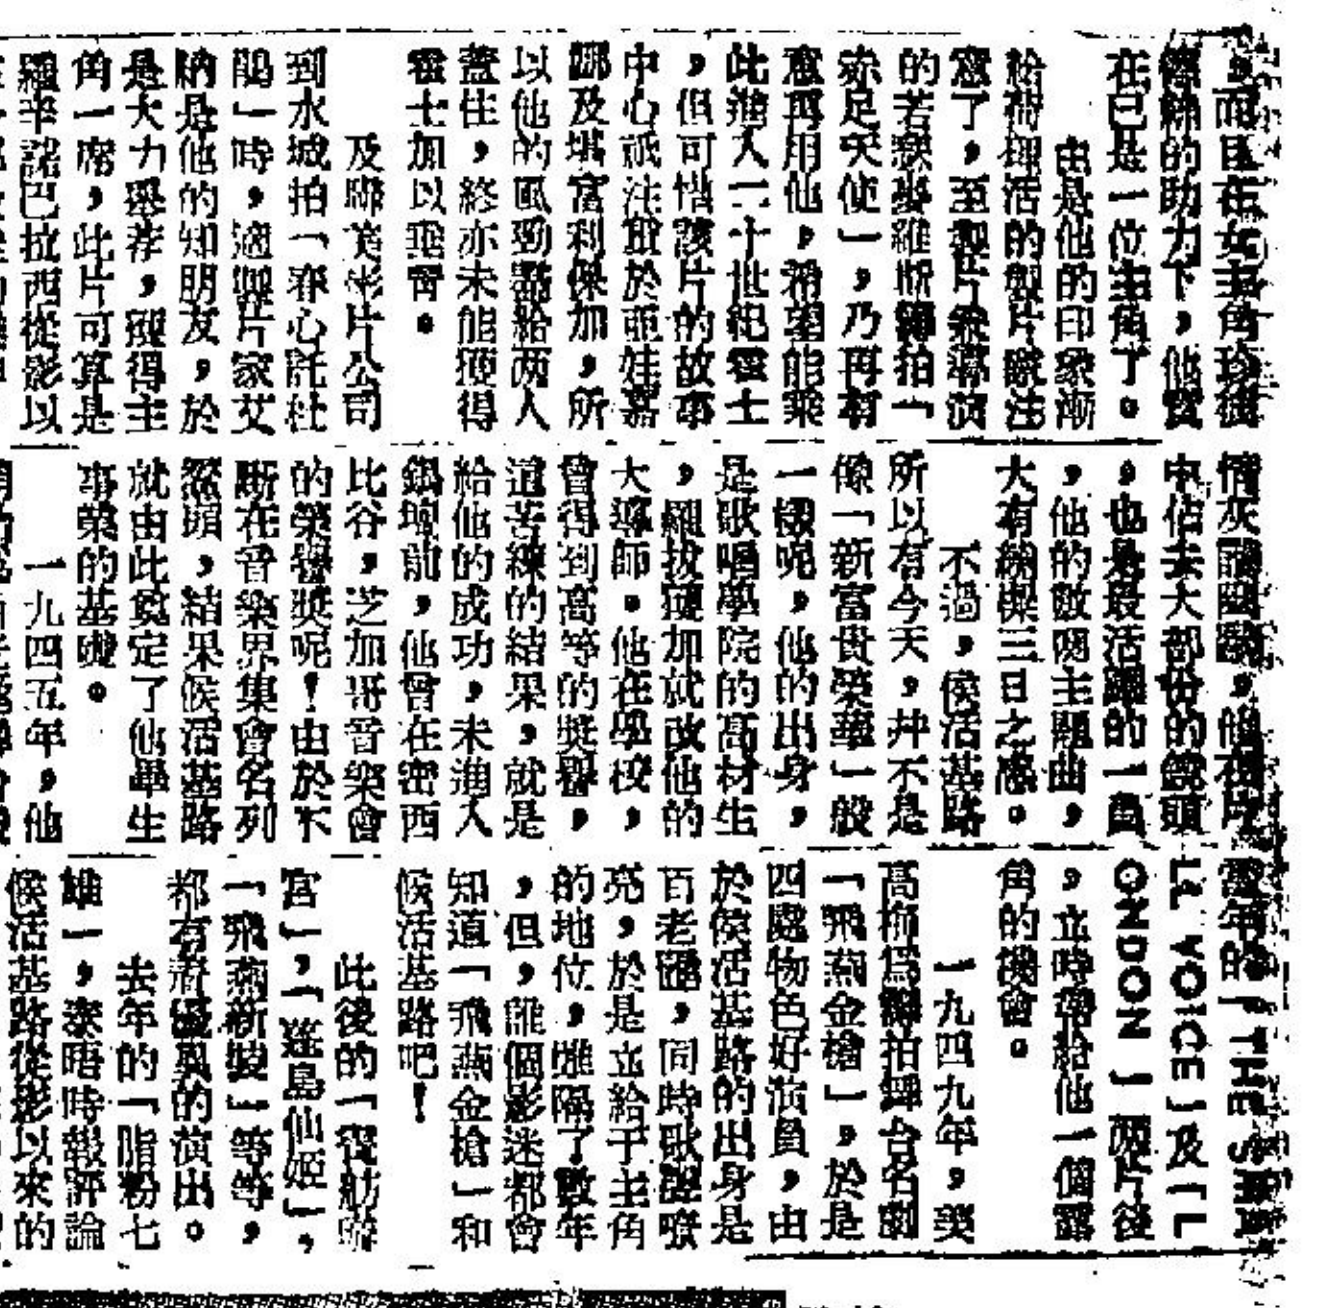 ，而且在女主角珍後
絲的助力下，他實
在已是一位主角了。
由是他的印象漸
給荷里活的製片家注
意了，至製片兼導演
的若瑟麥維斯籌拍「
赤足天使」，乃再有
意再用他，希望能乘
此進入二十世紀霍士
，但可惜該片的故事
中心祇注重於亞娃嘉
娜及堪富利保加，所
以他的風頭都給两人
蓋住，終亦未能獲得
霍士加以垂青。
及聯美影片公司
到水城拍「春心託杜
鵑」時，適製片家艾
納是他的知朋友，於
是大力舉荐，獲得主
角一席，此片可算是
羅辛諾巴拉西從影以
情灰，他在片
中佔去大部份的鏡頭
，也是最活躍的一員
，他的數闋主題曲，
大有繞樑三日之感。
不過，侯活基路
所以有今天，并不是
像「新富貴榮華」一般
一樣呢，他的出身，
是歌唱學院的高材生
，羅拔加就改他的
大導師。他在學校，
曾得到高等的獎譽，
道苦練的結果，就是
給他的成功，未進入
銀壇前，他曾在密西
比谷，芝加哥音樂會
的榮譽獎呢！由於不
斷在音樂界集會名列
前頭，結果侯活基路
就由此奠定了他畢生
事業的基礎。
一九四五年，他
當年的「THE SMA
LL VOICE」及「L
ONDON 」兩片後
，立時帶給他一個露
角的機會。
一九四九年，美
高梅爲籌拍舞台名劇
「飛燕金槍」，於是
四處物色好演員，由
於侯活基路的出身是
百老匯，同時歌喉嘹
亮，於是立給于主角
的地位，雖隔了數年
，但，誰個影迷都會
知道「飛燕金槍」和
侯活基路吧！
此後的「寶舫璇
宮」，「蓬島仙姬」，
「飛燕新裝」等等，
都有着優異的演出。
去年的「脂粉七
雄」，泰晤時報評論
侯活基路從影以來的